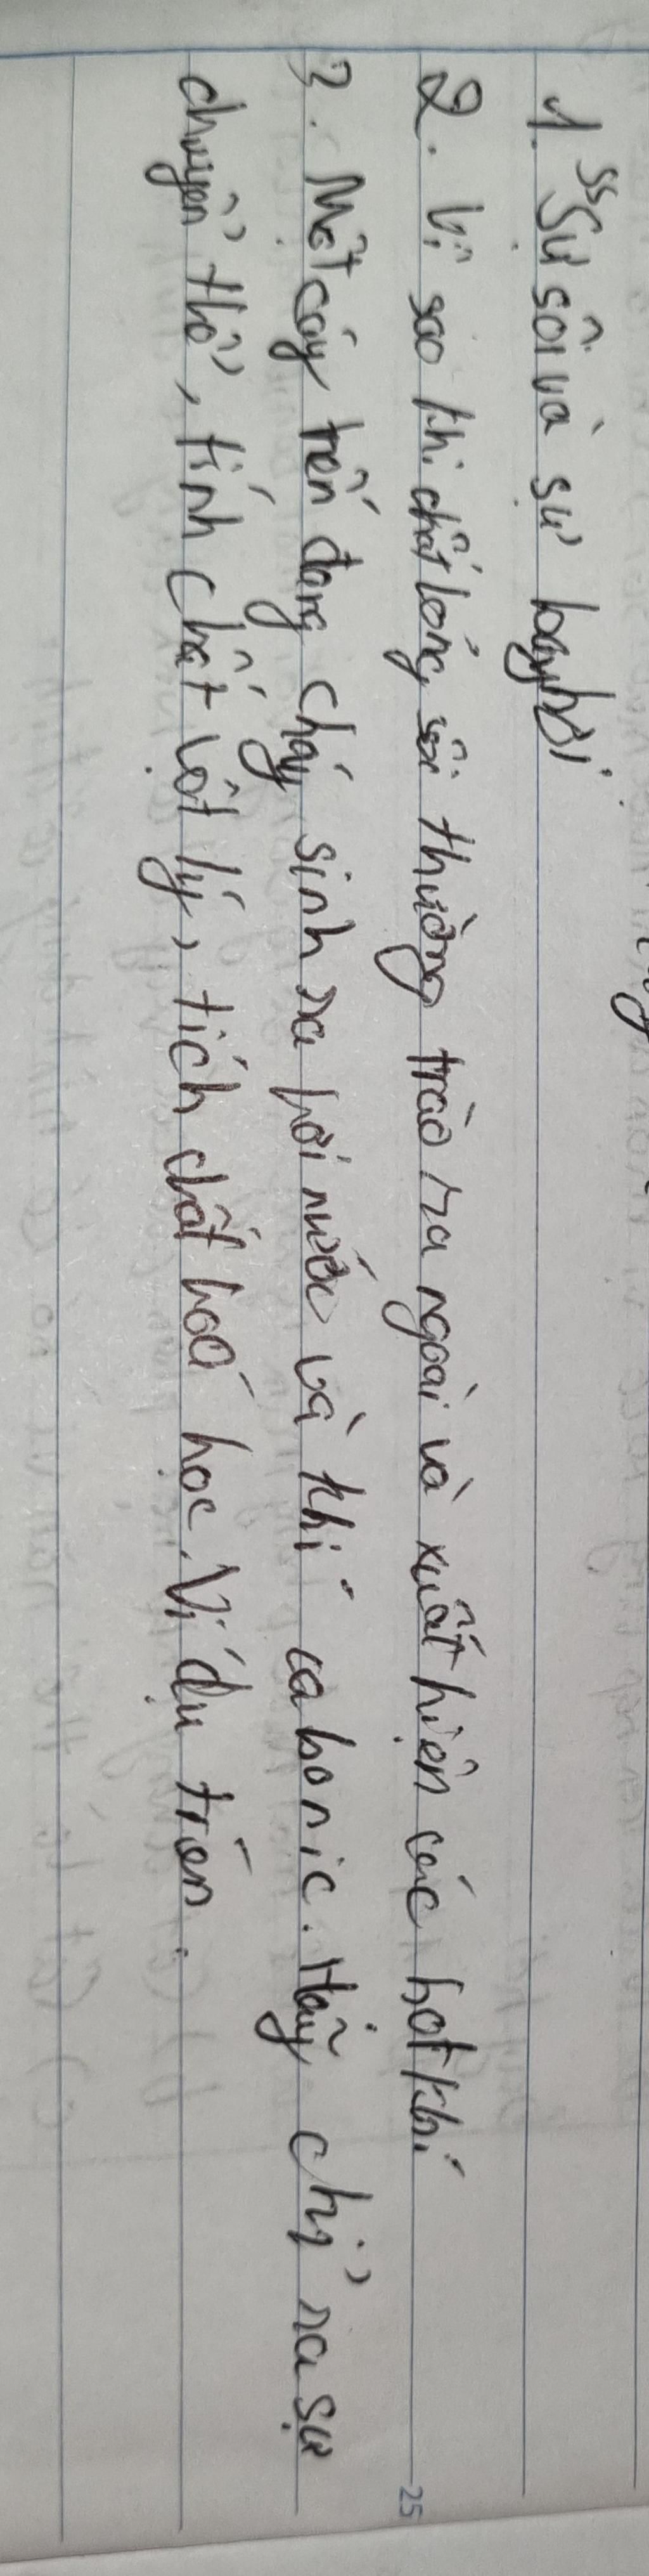 1. SS Sự sôi và sự bay hơi
2. Vì sao khi chất lỏng sôi thường trào ra ngoài và xuất hiện các hạt khí
3. Một cây nến đang cháy sinh ra hơi nước và khí cabonic. Hãy chỉ ra sự
chuyển thể, tính chất vật lý, tích chất hoá học. Ví dụ trên.
25